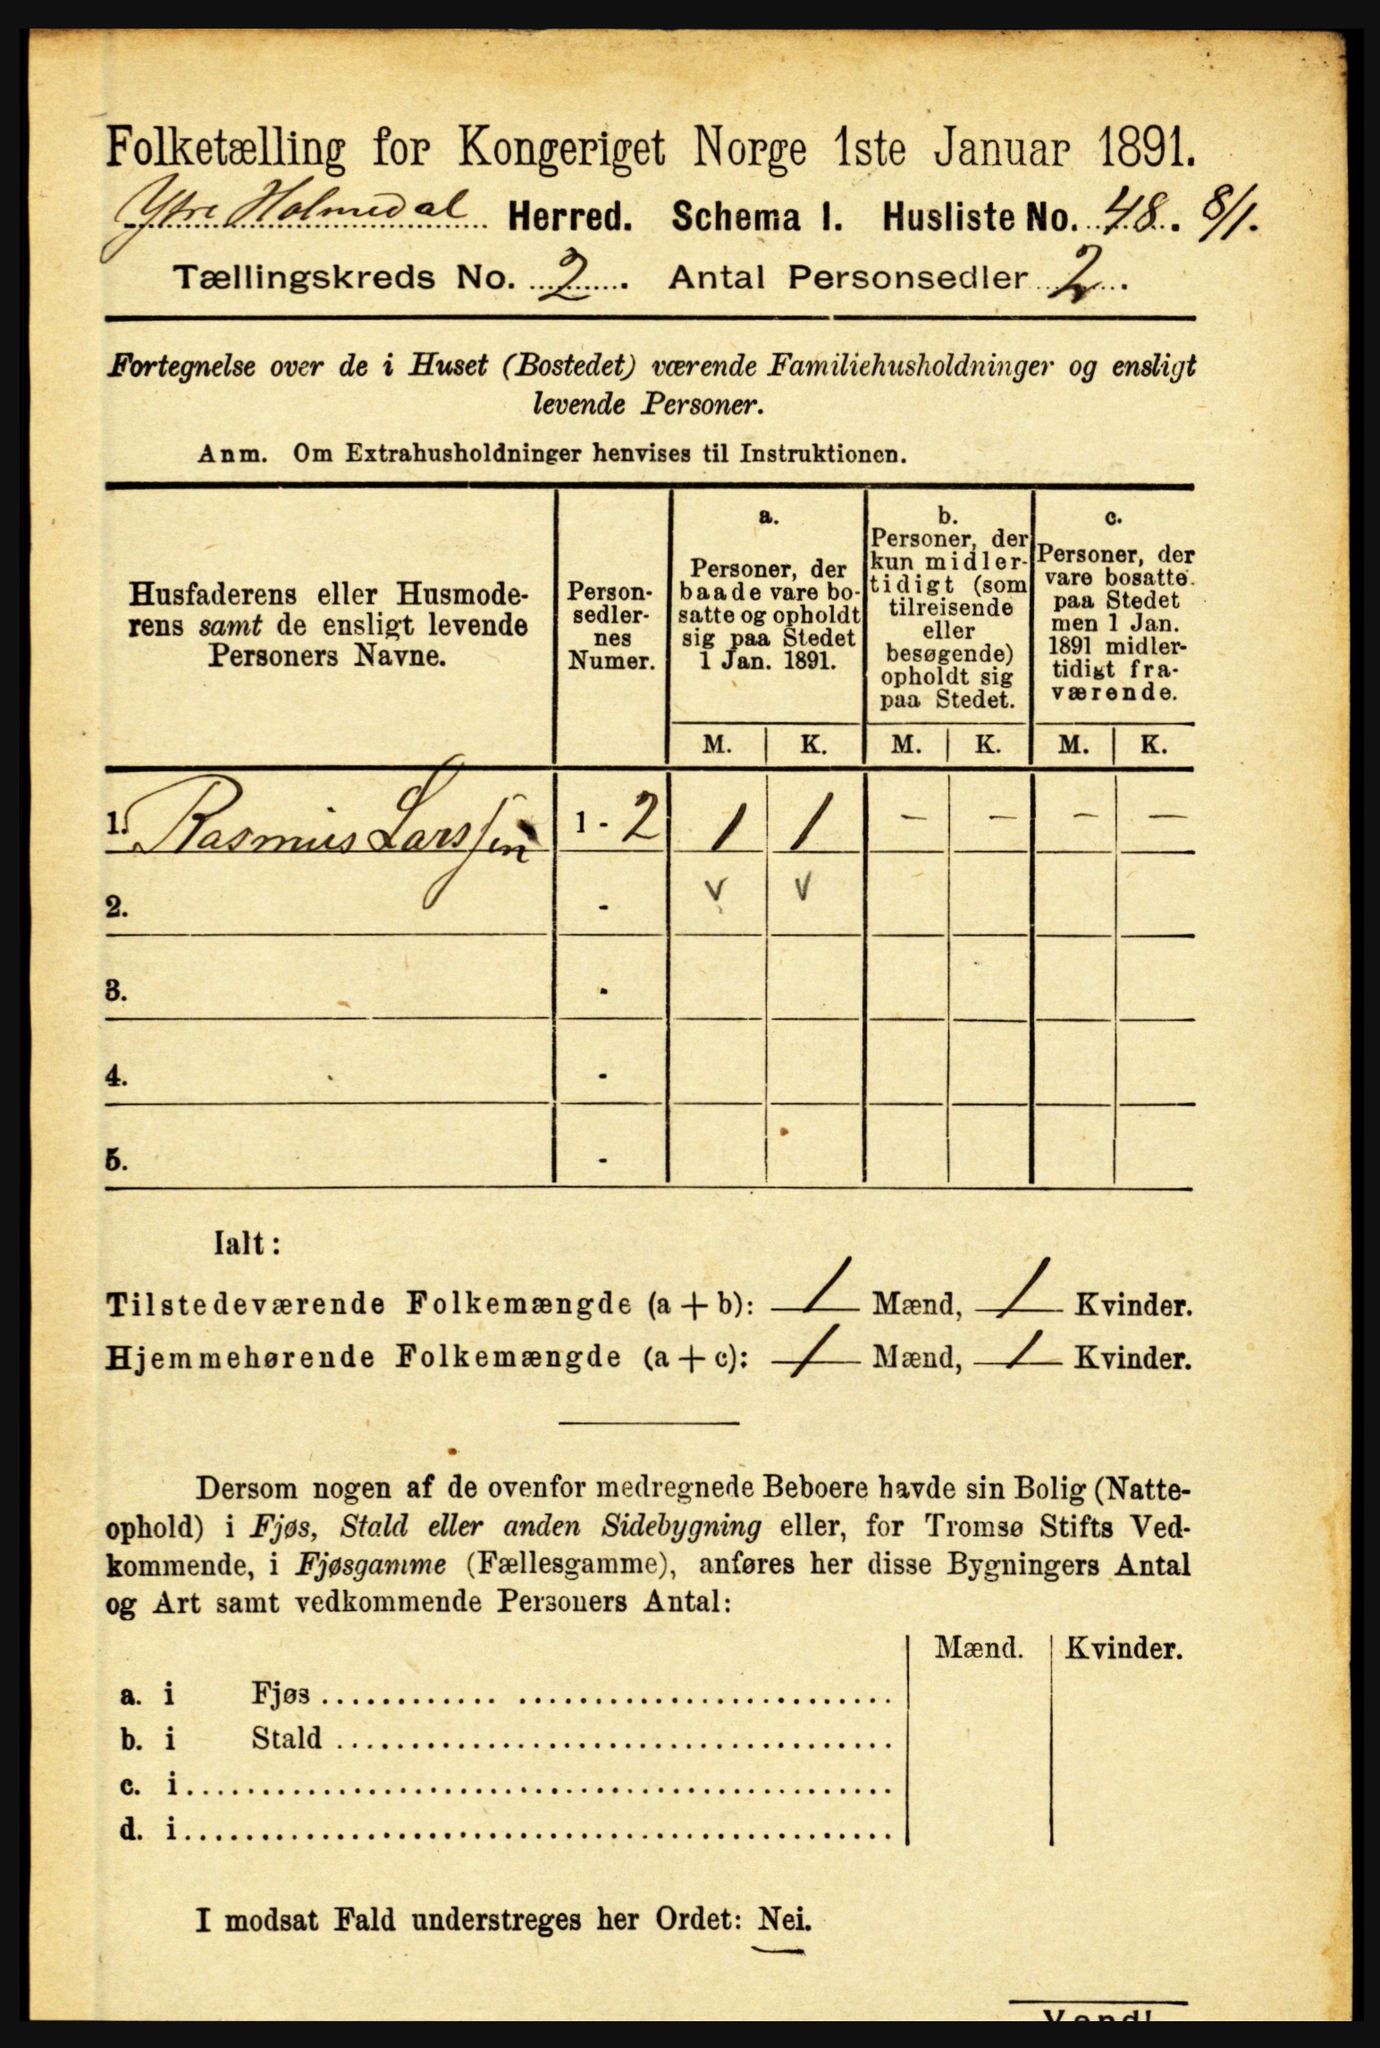 Folketælling for Kongeriget Norge 1ste Januar 1891.
Ytre Holmedal Herred. Schema I. Husliste No. 48. 8/1.
Tællingskreds No. 2. Antal Personsedler 2.
Fortegnelse over de i Huset (Bostedet) værende Familiehusholdninger og ensligt
levende Personer.
Anm. Om Extrahusholdninger henvises til Instruktionen.
Husfaderens eller Husmode-
rens samt de ensligt levende
Personers Navne.
Person-
sedler-
nes
Numer.
a.
Personer, der
baade vare bo-
satte og opholdt
sig paa Stedet
1 Jan. 1891.
b.
Personer, der
kun midler-
tidigt (som
tilreisende
eller
besøgende)
opholdt sig
paa Stedet.
c.
Personer, der
vare bosatte
paa Stedet
men 1 Jan.
1891 midler-
tidigt fra-
værende.
M. K. M. K. M. K.
1. Rasmus Larssen 1 - 2 1 1 - - - -
2. - v v
3. -
4. -
5. -
Ialt:
Tilstedeværende Folkemængde (a + b): 1 Mænd, 1 Kvinder.
Hjemmehørende Folkemængde (a + c): 1 Mænd, 1 Kvinder.
Dersom nogen af de ovenfor medregnede Beboere havde sin Bolig (Natte-
ophold) i Fjøs, Stald eller anden Sidebygning eller, for Tromsø Stifts Ved-
kommende, i Fjøsgamme (Fællesgamme), anføres her disse Bygningers Antal
og Art samt vedkommende Personers Antal:
Mænd. Kvinder.
a. i Fjøs
b. i Stald
c. i
d. i
I modsat Fald understreges her Ordet: Nei.
Vend!